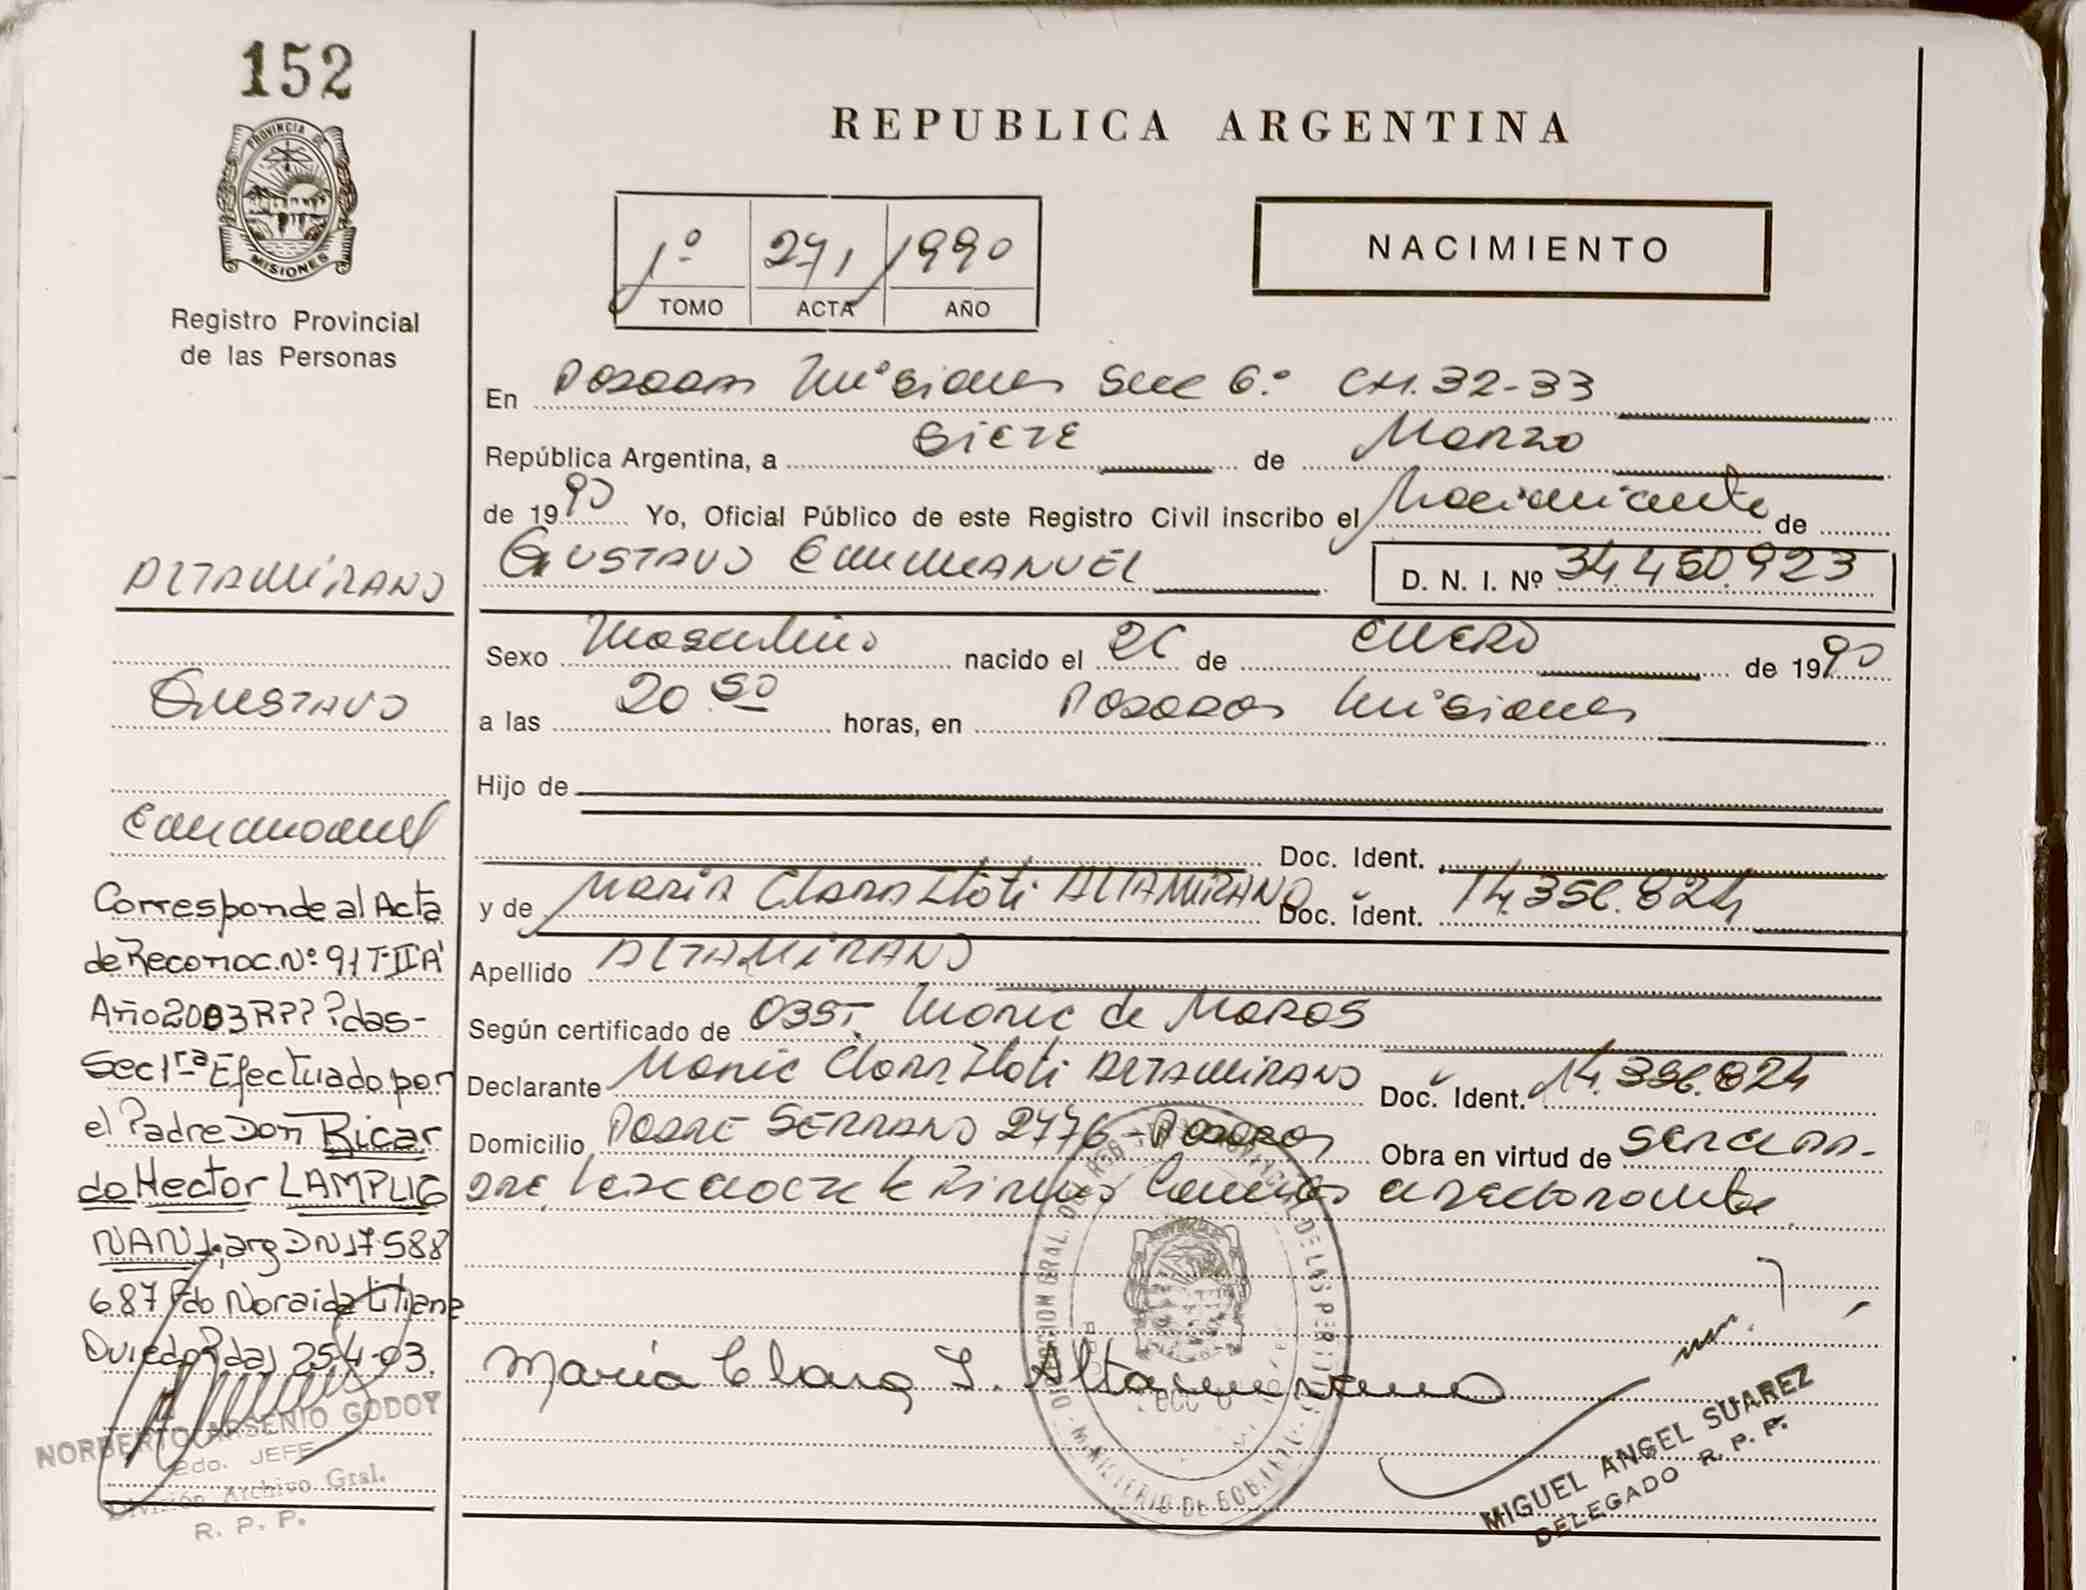 152
PROVINCIA DE
MISIONES
Registro Provincial
de las Personas
REPUBLICA ARGENTINA
1º 271 1990
TOMO ACTA AÑO
NACIMIENTO
En Posadas Misiones Secc 6º CH. 32-33
República Argentina, a SIETE de Marzo
de 1990 Yo, Oficial Público de este Registro Civil inscribo el Nacimiento de
GUSTAVO EMMANUEL D. N. I. Nº 34.450.923
Sexo Masculino nacido el 26 de ENERO de 1990
a las 20.50 horas, en Posadas Misiones
Hijo de
Doc. Ident.
y de Maria Clara Itati ALTAMIRANO Doc. Ident. 14.356.824
Apellido ALTAMIRANO
Según certificado de OBST. Maria de
Declarante Maria Clara Itati ALTAMIRANO Doc. Ident. 14.356.824
Domicilio PADRE SERRANO 2776 - Posadas Obra en virtud de
ALTAMIRANO
GUSTAVO
Emmanuel
Corresponde al Acta
de Reconoc. Nº 91 T-II"A"
Año 2003 R.P.P. Pdas-
Sec 1ra Efectuado por
el Padre Don Ricar
do Hector LAMPUG
NANI, arg DNI 17.588
687 Fdo Noraida Liliana
Oviedo Pdas 25-4-03.
NORBERTO ARSENIO GODOY
2do. JEFE
División Archivo Gral.
R. P. P.
Maria Clara I. Altamirano
MINISTERIO DE GOBIERNO
MIGUEL ANGEL SUAREZ
DELEGADO R. P. P.